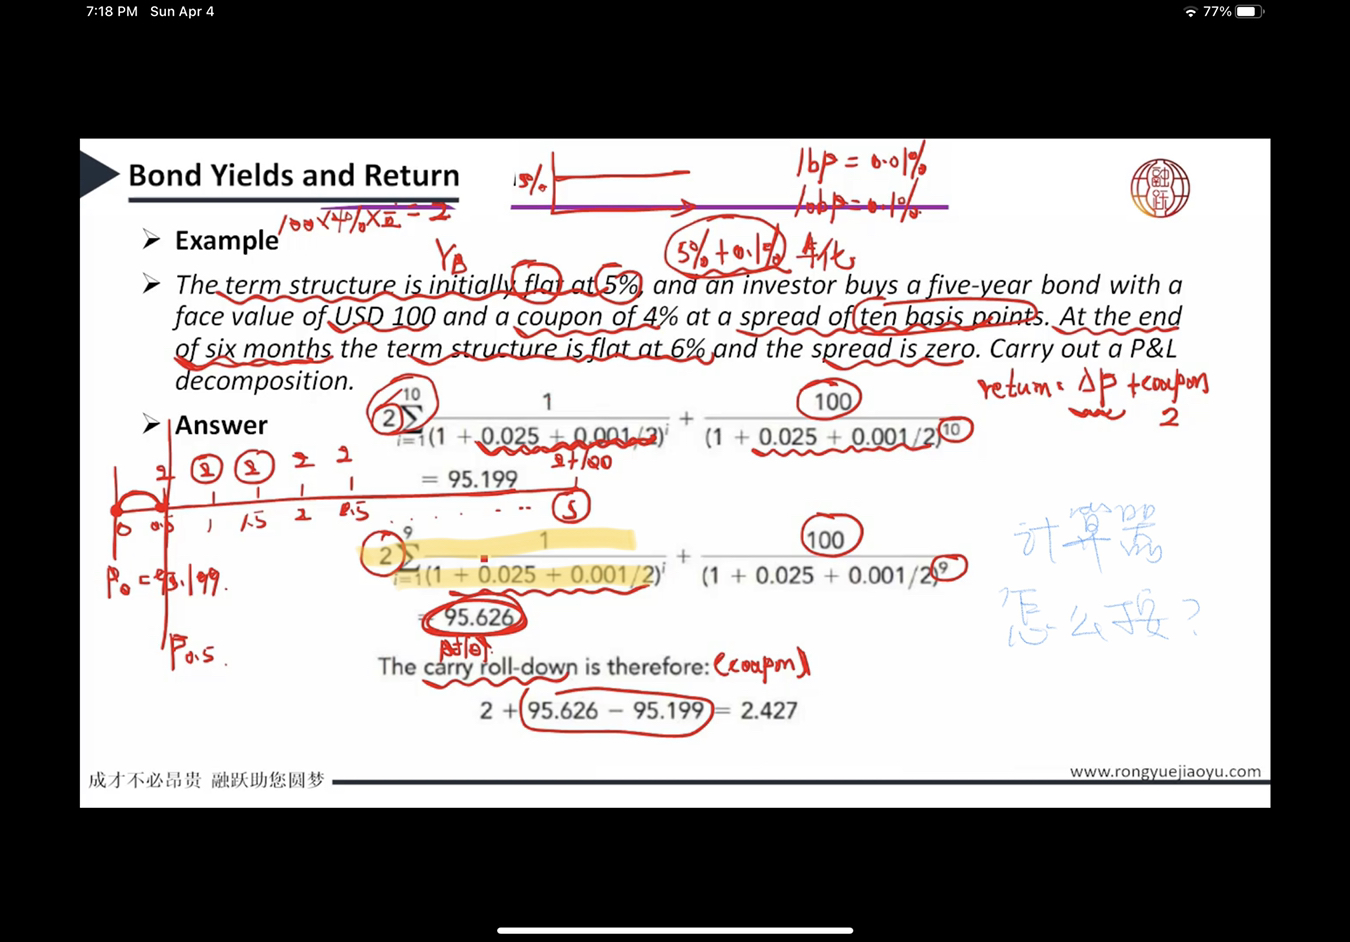 7:18 PM Sun Apr 4
77%
Bond Yields and Return
5%
1bp = 0.01%
10bp = 0.1%
100×4%×
= 2
Example
YB
5%+0.1% 年化
The term structure is initially flat at 5%, and an investor buys a five-year bond with a
face value of USD 100 and a coupon of 4% at a spread of ten basis points. At the end
of six months the term structure is flat at 6% and the spread is zero. Carry out a P&L
decomposition.
return = ΔP + coupon
2
Answer
2 ∑_{i=1}^{10} 1/(1 + 0.025 + 0.001/2)^i + 100/(1 + 0.025 + 0.001/2)^10
= 95.199
2+100
2 2 2 2 2
0 0.5 1 1.5 2 2.5 . . . . . . 5
2 ∑_{i=1}^{9} 1/(1 + 0.025 + 0.001/2)^i + 100/(1 + 0.025 + 0.001/2)^9
= 95.626
计算器
怎么按?
P0 = 95.199.
P0.5.
The carry roll-down is therefore: (coupon)
2 + 95.626 − 95.199 = 2.427
成才不必昂贵 融跃助您圆梦
www.rongyuejiaoyu.com
融跃